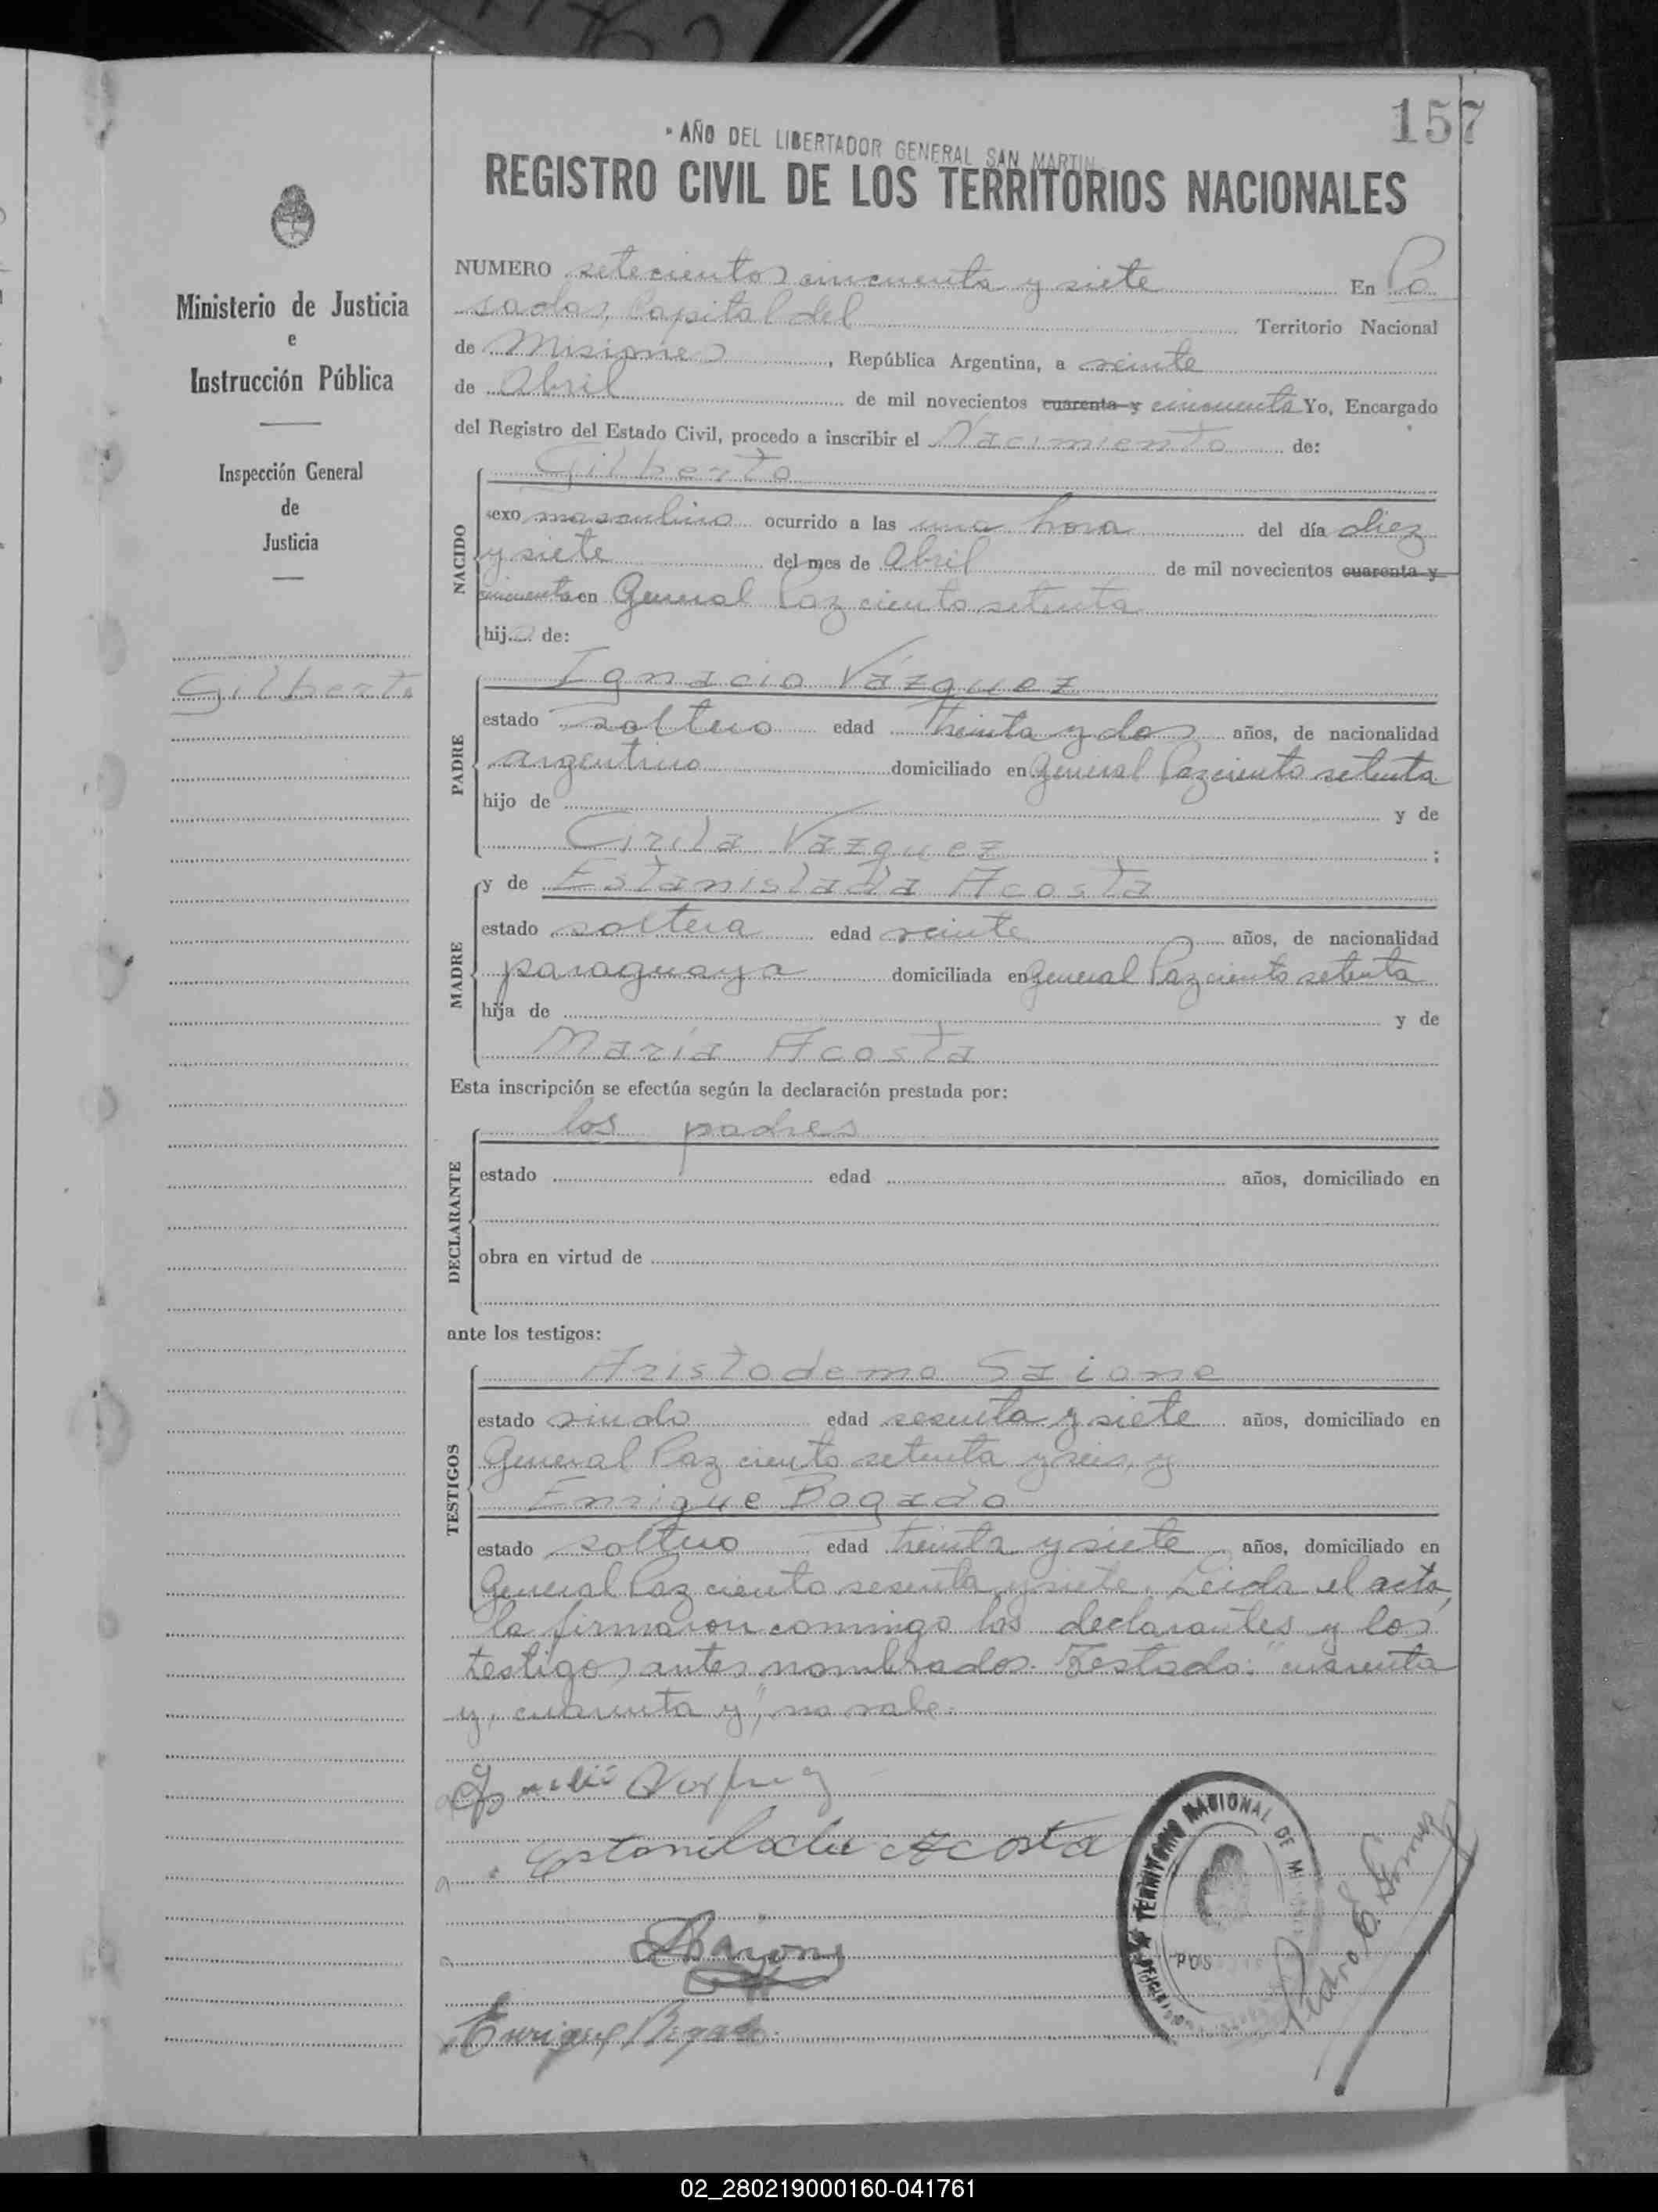 157
* AÑO DEL LIBERTADOR GENERAL SAN MARTIN
REGISTRO CIVIL DE LOS TERRITORIOS NACIONALES
Ministerio de Justicia
e
Instrucción Pública
Inspección General
de
Justicia
Gilberto
NUMERO setecientos cincuenta y siete En Po
sadas, Capital del Territorio Nacional
de Misiones, República Argentina, a veinte
de Abril de mil novecientos cuarenta y cincuenta Yo, Encargado
del Registro del Estado Civil, procedo a inscribir el Nacimiento de:
NACIDO
Gilberto
sexo masculino ocurrido a las una hora del día diez
y siete del mes de Abril de mil novecientos cuarenta y
cincuenta en General Paz ciento setenta
hijo de:
PADRE
Ignacio Vázquez
estado soltero edad treinta y dos años, de nacionalidad
argentino domiciliado en General Paz ciento setenta
hijo de y de
Cirila Vazquez ;
MADRE
y de Estanislada Acosta
estado soltera edad veinte años, de nacionalidad
paraguaya domiciliada en General Paz ciento setenta
hija de y de
María Acosta
Esta inscripción se efectúa según la declaración prestada por:
DECLARANTE
los padres
estado edad años, domiciliado en
obra en virtud de
ante los testigos:
TESTIGOS
Aristodemo Saione
estado viudo edad sesenta y siete años, domiciliado en
General Paz ciento setenta y seis, y
Enrique Bogado
estado soltero edad treinta y siete años, domiciliado en
General Paz ciento sesenta y siete. Leida el acta,
la firmaron conmigo los declarantes y los
testigos antes nombrados. Testado: "cuarenta
y, cuarenta y", no vale.
Estanilada Acosta
Enrique Bogado
TERRITORIO NACIONAL DE MISIONES
POS
Pedro E. Gomez
02_280219000160-041761